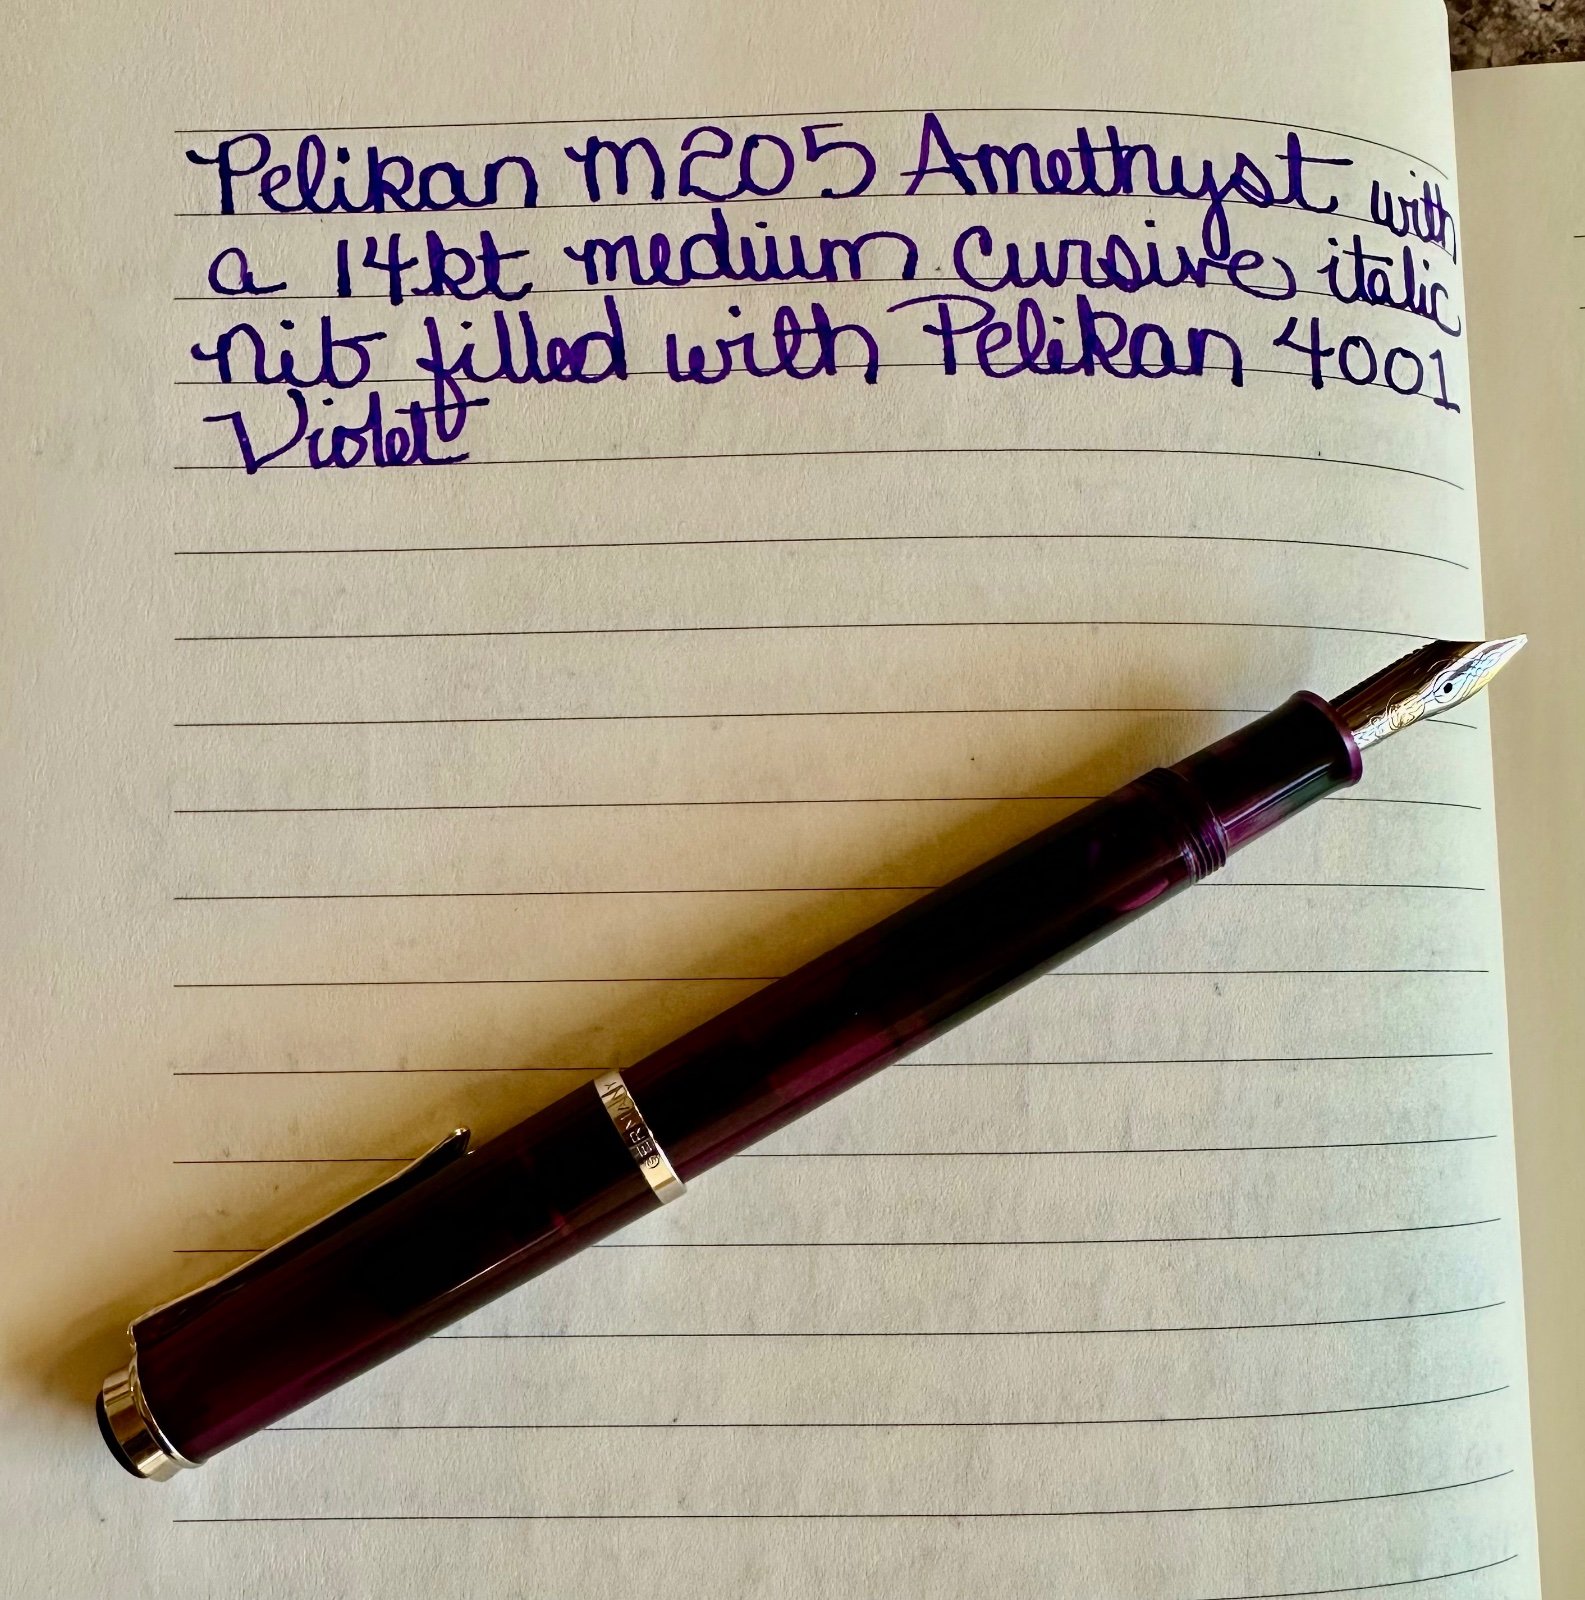 Pelikan M205 Amethyst with
a 14kt medium cursive italic
nib filled with Pelikan 4001
Violet
GERMANY